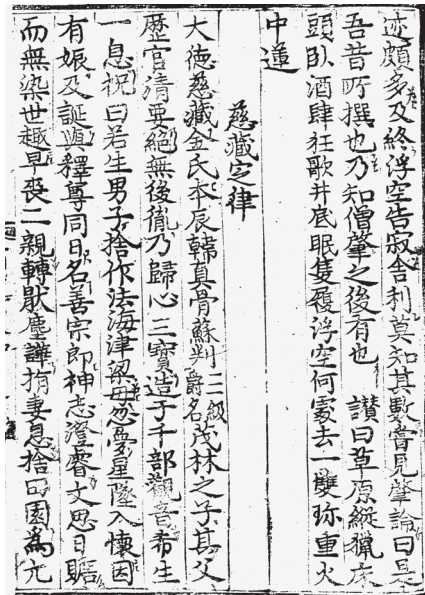 迹頗多及終浮空告寂舍利莫知其數嘗見肇論曰是
吾昔所撰也乃知僧肇之後有也 讃曰草原縱獵床
頭臥酒肆狂歌井底眠隻履浮空何處去一雙珎重火
中蓮
慈藏定律
大徳慈藏金氏本辰韓真骨蘇判三級爵名茂林之子其父
歴官清要絕無後胤乃歸心三寳造于千部觀音希生
一息祝曰若生男子捨作法海津梁母忽夢星墜入懷因
有娠及誕與釋尊同日名善宗郎神志澄睿文思日贍
而無染世趣早喪二親轉厭塵譁捐妻息捨田園為元